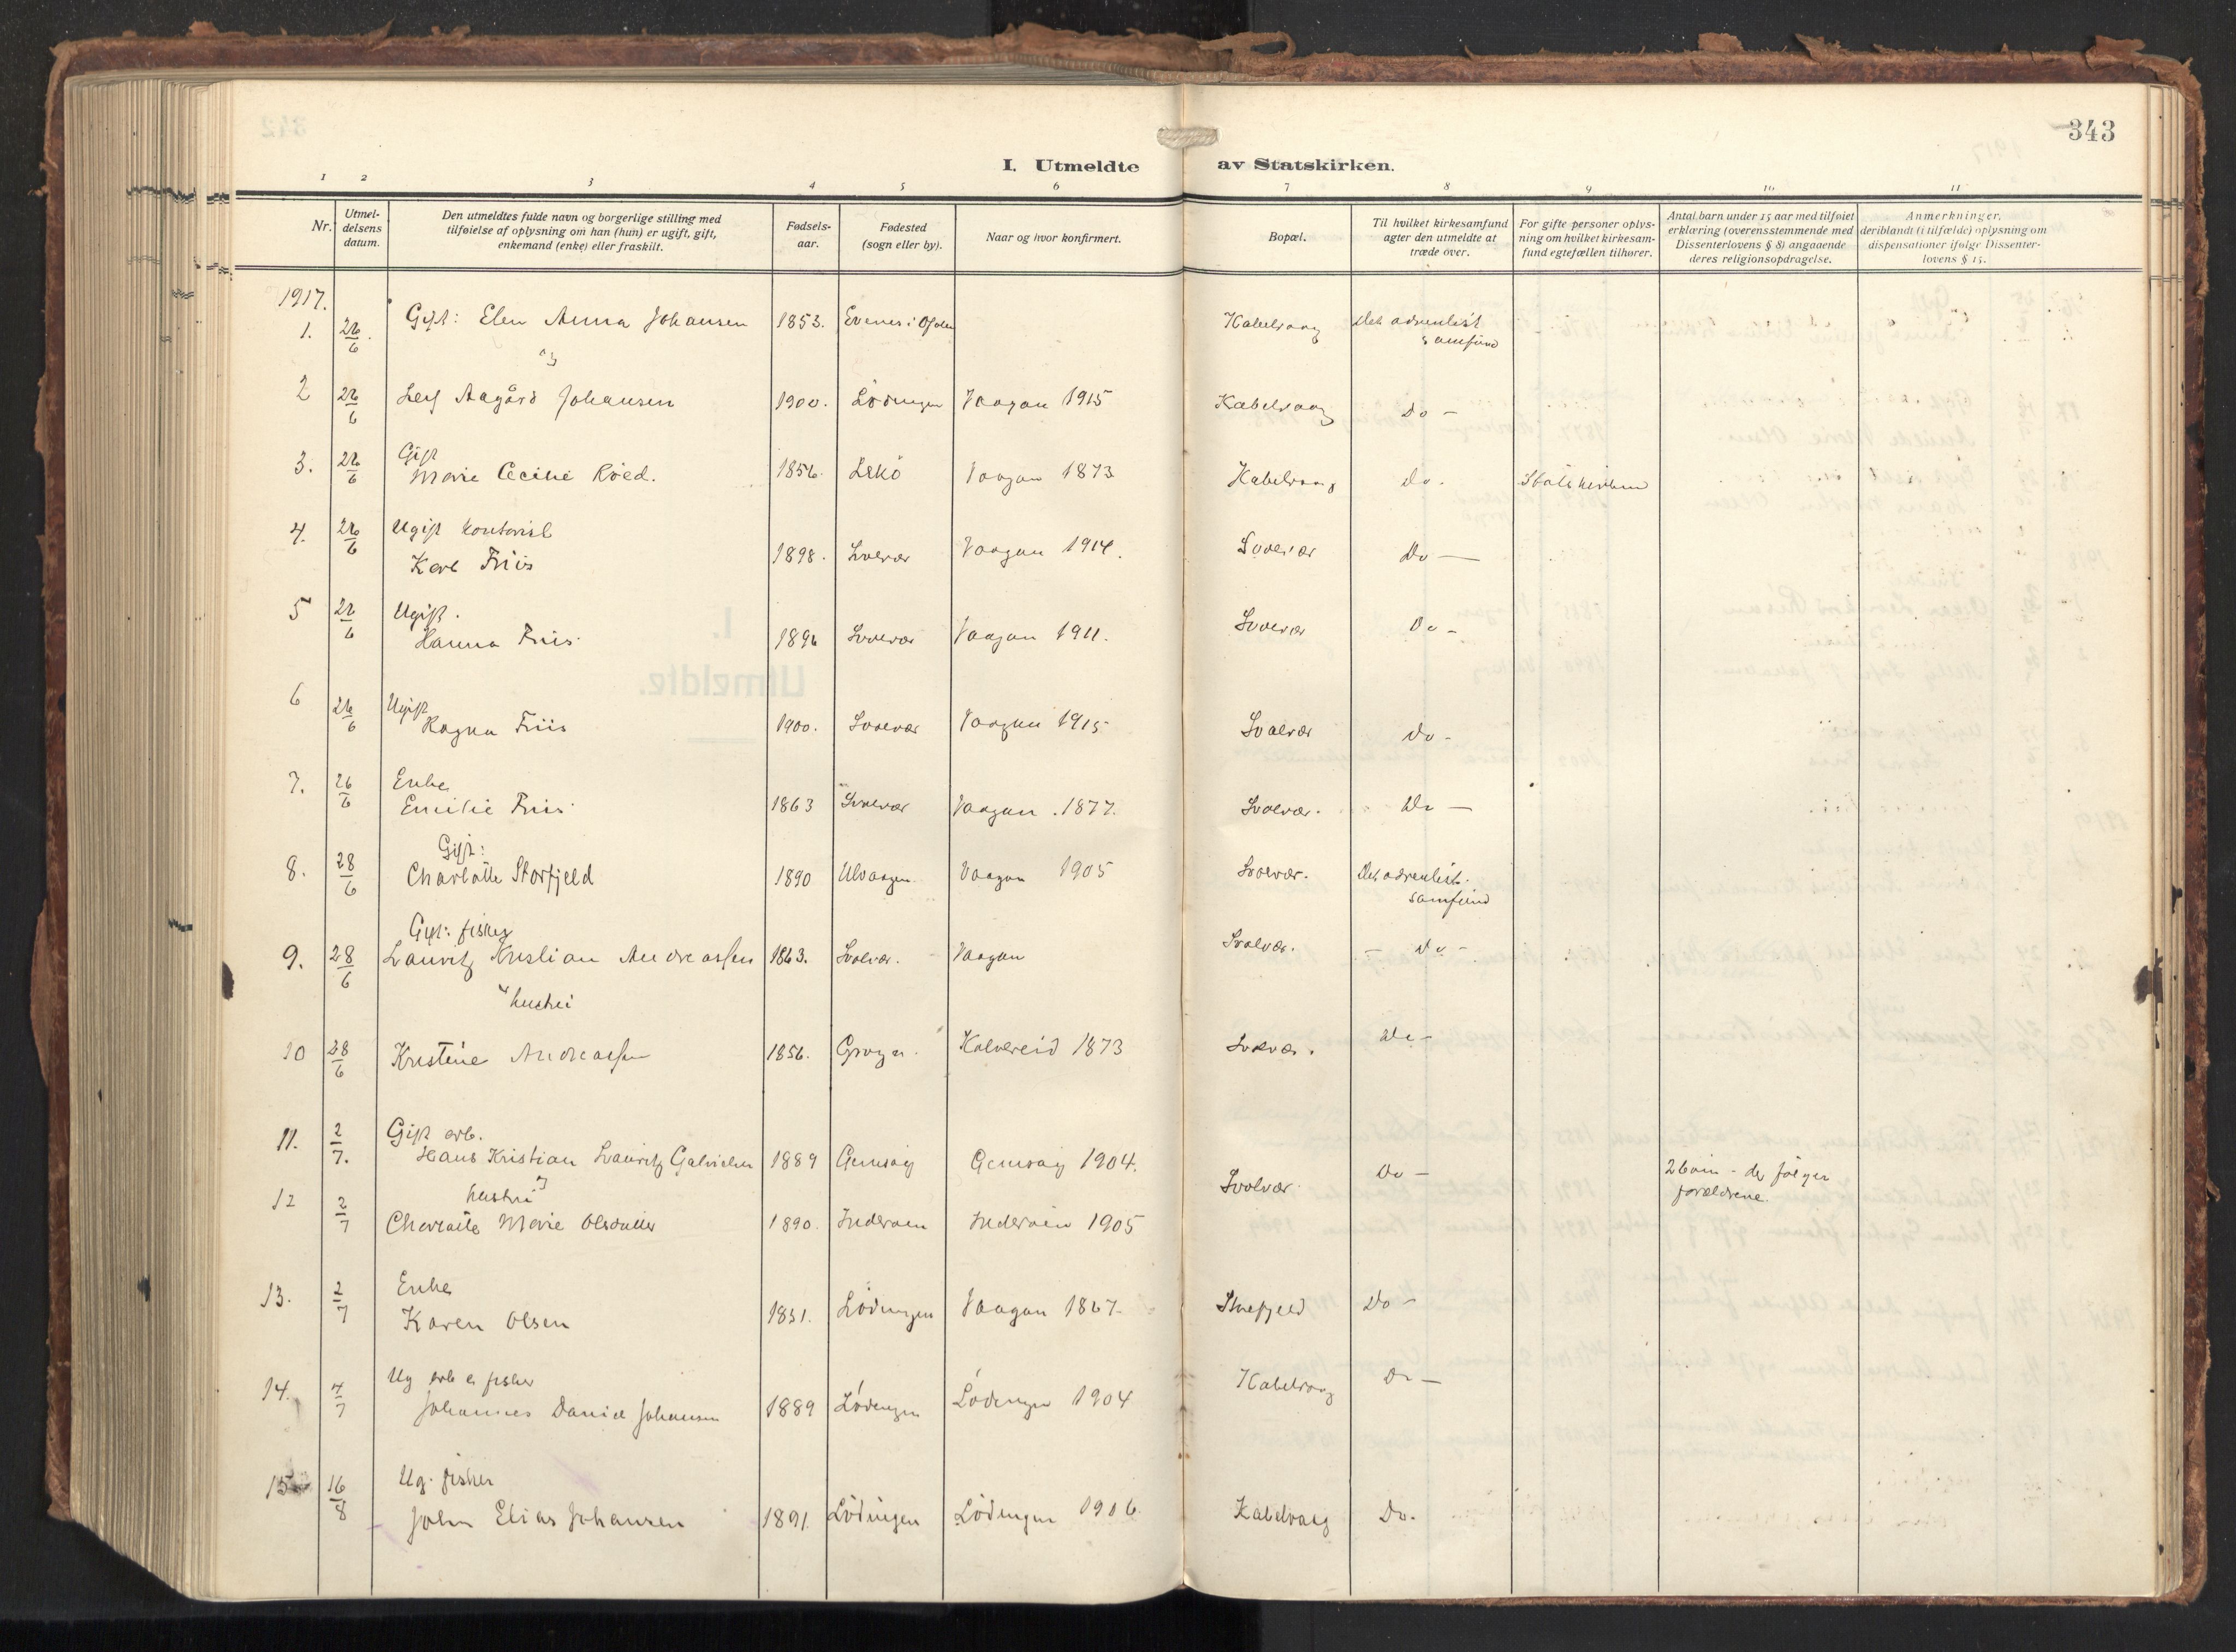 343
I. Utmeldte av Statskirken.
1 2 3 4 5 6 7 8 9 10 11
Nr. Utmel-delsens datum. Den utmeldtes fulde navn og borgerlige stilling med tilføielse af oplysning om han (hun) er ugift, gift, enkemand (enke) eller fraskilt. Fødsels-aar. Fødested (sogn eller by). Naar og hvor konfirmert. Bopæl. Til hvilket kirkesamfund agter den utmeldte at træde over. For gifte personer oplys-ning om hvilket kirkesam-fund egtefællen tilhører. Antal barn under 15 aar med tilføiet erklæring (overensstemmende med Dissenterlovens § 8) angaaende deres religionsopdragelse. Anmerkninger, deriblandt (i tilfælde) oplysning om dispensationer ifølge Dissenter-lovens § 15.
1917.
1. 26/6 Gift: Elen Anna Johansen 1853. Evenes i Ofoten Kabelvaag Det adventist samfund
2 26/6 Leif Aagård Johansen 1900. Lödingen Vaagan 1915 Kabelvaag Do -
3. 26/6 Gift
Marie Cecilie Röed. 1856. Lekö Vaagan 1873 Kabelvaag do. Statskirken
4. 26/6 Ugift kontorist
Karl Friis 1898. Svolvær Vaagan 1914. Svolvær Do —
5 26/6 Ugift.
Hanna Friis 1896 Svolvær Vaagan 1911. Svolvær Do -
6 26/6 Ugift
Ragna Friis 1900. Svolvær Vaagan 1915 Svolvær Do -
7. 26/6 Enke
Emilie Friis 1863 Svolvær Vaagan. 1877. Svolvær. Do —
Gift:
8. 28/6 Charlotte Storfjeld 1890 Ulvaagen Vaagan 1905 Svolvær. Det adventist. samfund
Gift: fisker
9. 28/6 Lauritz Kristian Andreassen 1863. Svolvær. Vaagan Svolvær. - do -
hustru
10 28/6 Kristine Andreassen 1856. Kolvereid 1873 Svolvær. Do -
11. 2/7. Gift arb.
Hans Kristian Lauritz 1889 1904. Svolvær Do - 2 barn - de følger forældrene.
12 2/7 hustru
Charlotte Marie Olsdatter 1890. Inderøen Inderøen 1905
13. 2/7 Enke
Karen Olsen 1851. Lödingen Vaagan 1867. Do -
14. 4/7 Ug arb e fisker
Johannes Daniel Johansen 1889 Lödingen Lödingen 1904 Kabelvaag Do —
15 16/8 Ug. fisker
John Elias Johansen 1891. Lödingen Lödingen 1906 Kabelvaag Do.